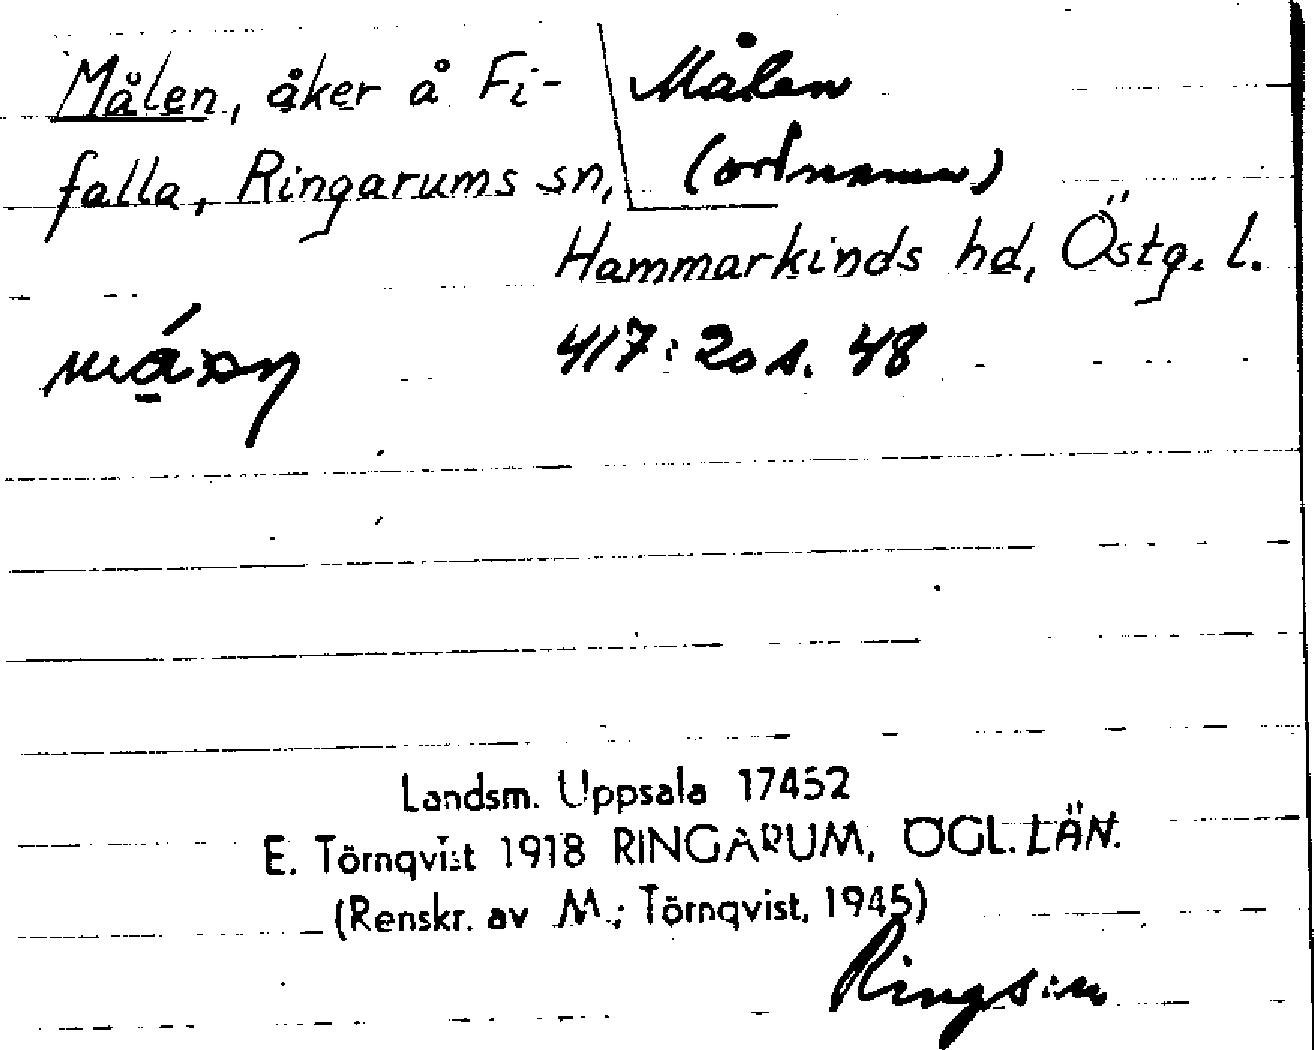 Målen, åker å Fi-
falla, Ringarums sn,
Målen
(ortnamn)
Hammarkinds hd, Östg. l.
417:20 s. 48
Landsm. Uppsala 17452
E. Törnqvist 1918 RINGARUM, ÖGL. LÄN.
(Renskr. av M. Törnqvist, 1945)